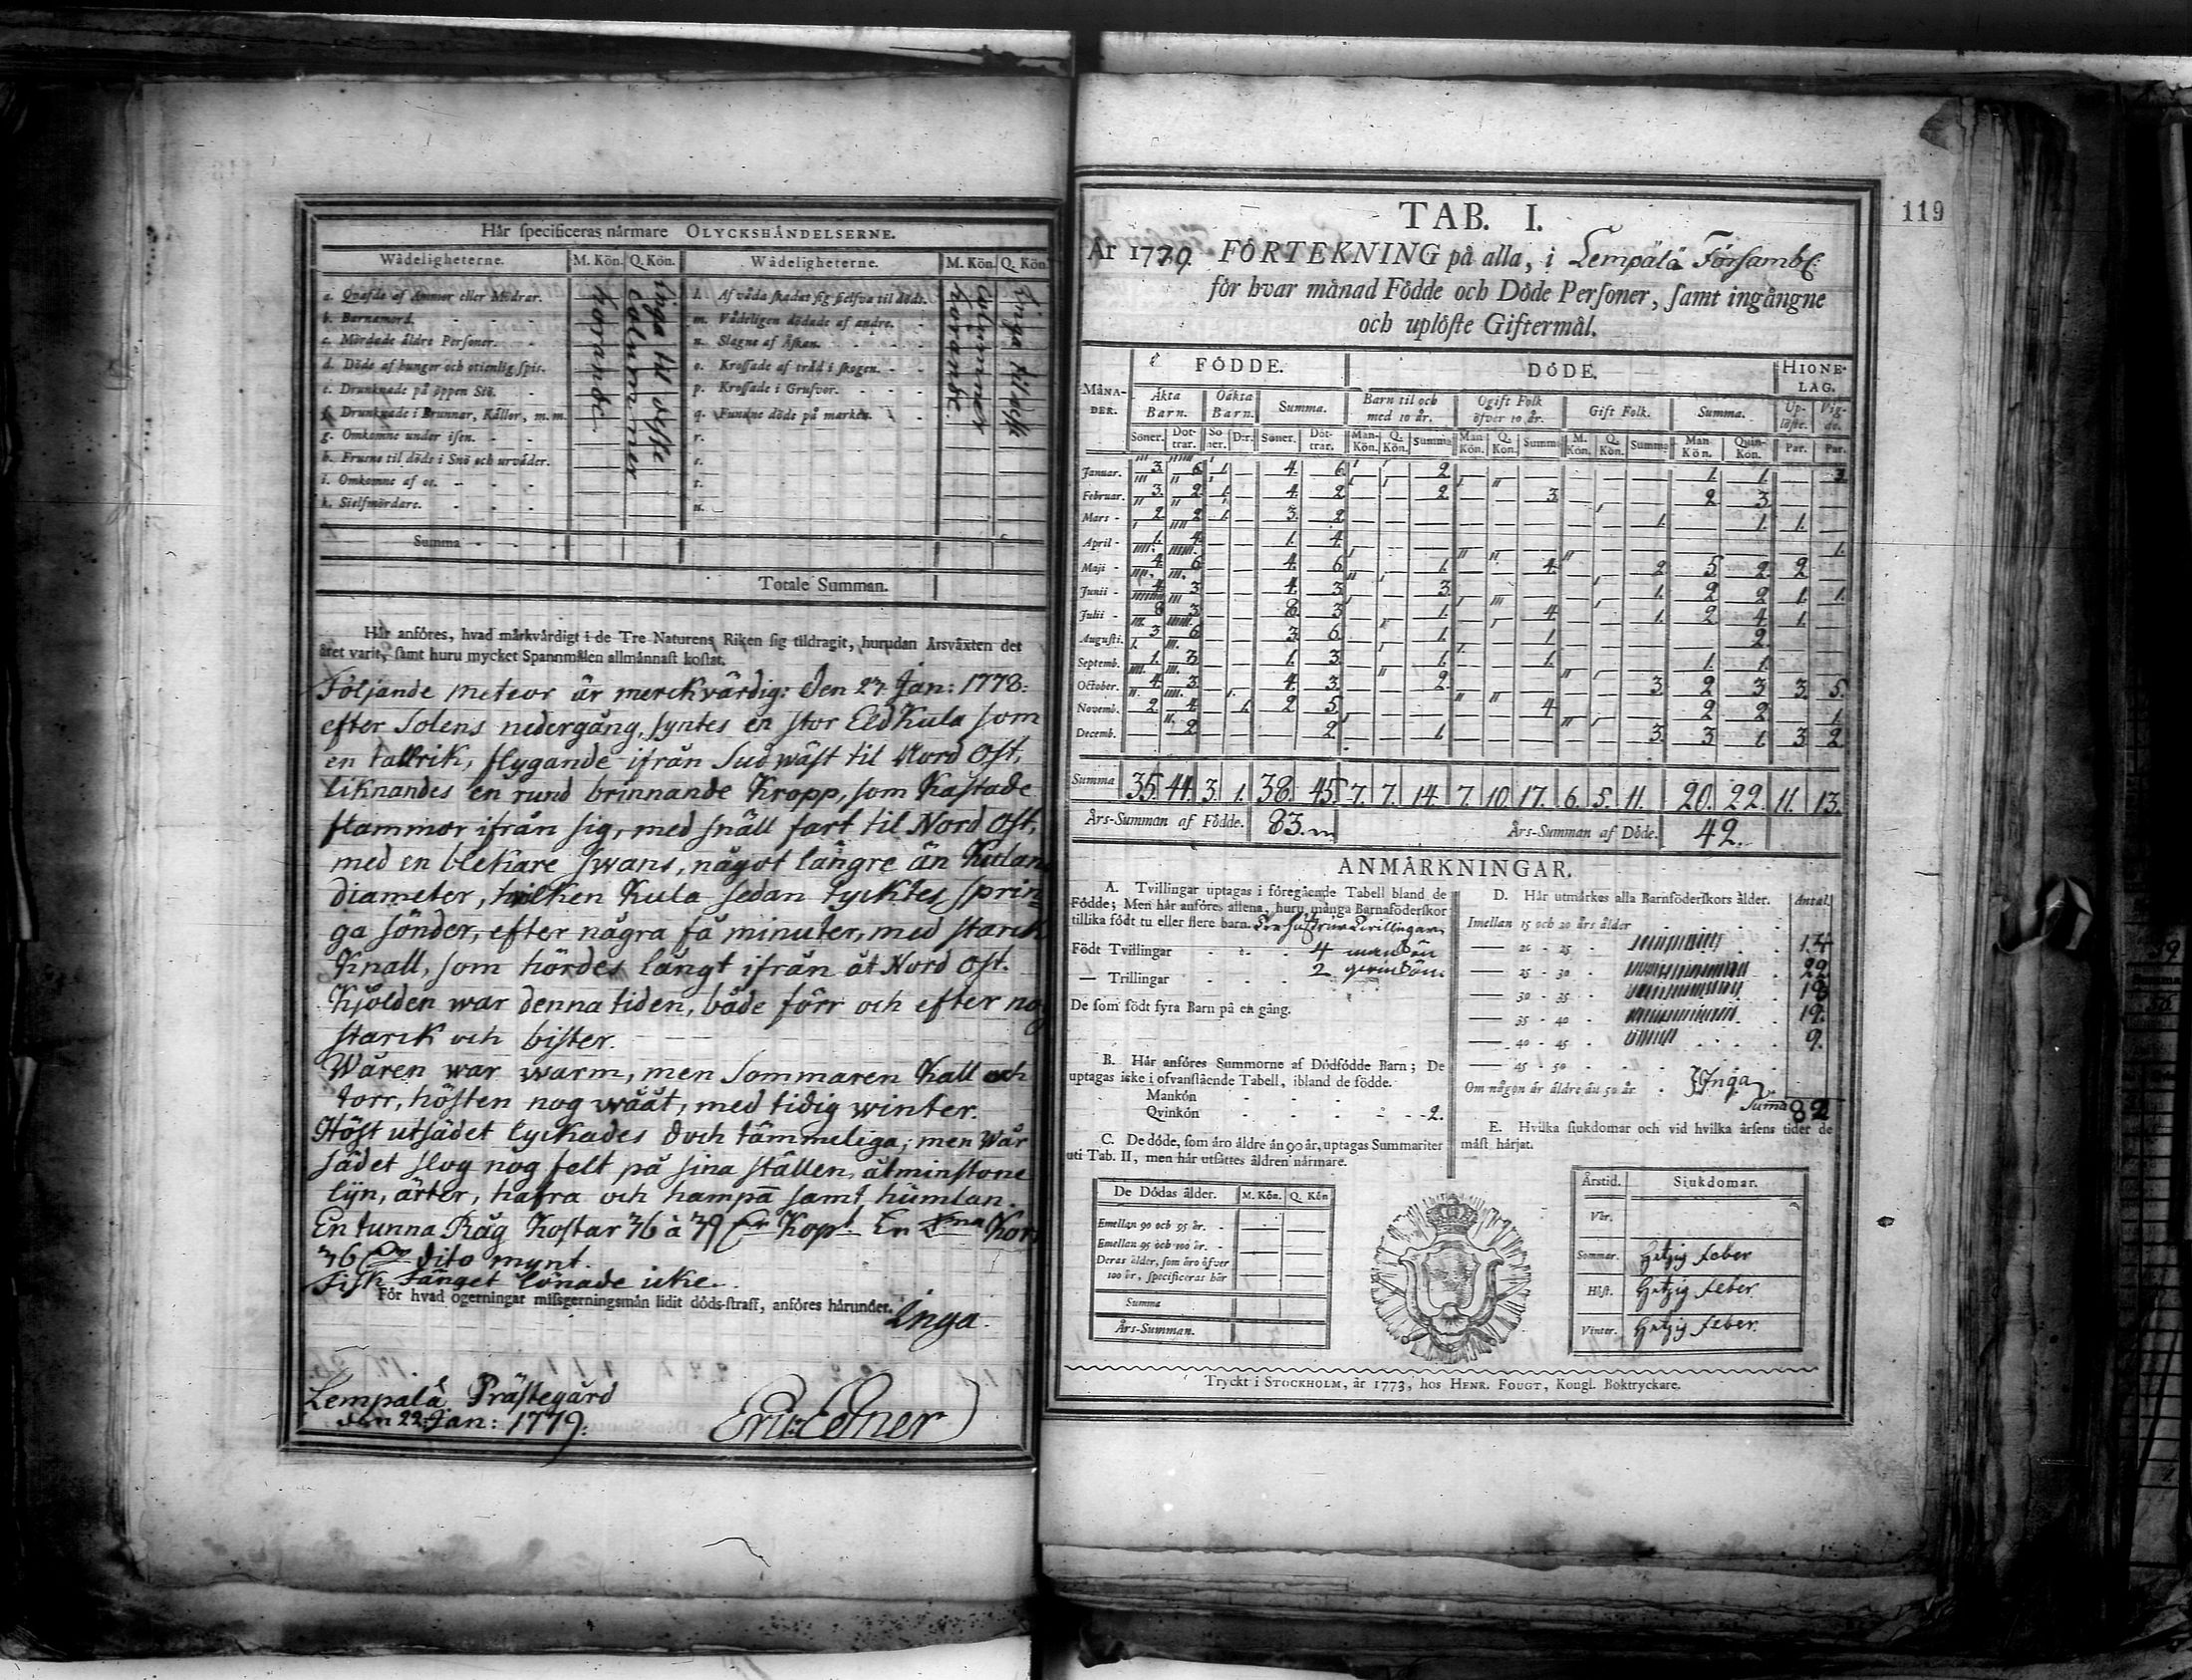 Här specificeras närmare OLYCKSHÄNDELSERNE.
Wådeligheterne. M. Kön. Q. Kön. Wådeligheterne. M. Kön. Q. Kön
a. Qvafde af Ammor eller Mödrar. l. Af våda skadat sig sielfva til döds.
b. Barnamord. m. Vådeligen dödade af andre.
c. Mördade äldre Personer. n. Slagne af Åskan.
d. Döde af hunger och otienlig spis. o. Krossade af träd i skogen.
e. Drunknade på öppen Siö. p. Krossade i Grufvor.
f. Drunknade i Brunnar, Källor, m. m. q. Fundne döde på marken.
g. Omkomne under isen. r.
h. Frusne til döds i Snö och urväder. s.
i. Omkomne af os. t.
k. Sielfmördare. u.
Inga til desse
Columner
horande
Inga til desse
Columner
horande
Summa
Totale Summan.
Här anföres, hvad märkvärdigt i de Tre Naturens Riken sig tildragit, hurudan Årsväxten det
året varit, samt huru mycket Spannmålen allmännast kostat.
Följande meteor är merckvärdig: den 27. Jan: 1778:
efter Solens nedergång, syntes en stor Eld Kula som
en tallrik, flygande ifrån Sudwäst til Nord Ost,
liknandes en rund brinnande Kropp, som Kastade
flammor ifrån sig, med snäll fart til Nord Ost,
med en blekare swans, något längre än Kulans
diameter, hvilken Kula sedan tycktes sprin-
ga sönder, efter några få minuter, med starck
Knall, som hördes långt ifrån åt Nord Ost.
Kjölden war denna tiden, både förr och efter nog
starck och bister.
Wåren war warm, men Sommaren Kall och
torr, hösten nog wååt, med tidig winter.
Höst utsädet lyckades doch tämmeliga; men wår
sädet slog nog felt på sina ställen, åtminstone
lijn, ärter, hafra och hampa samt humlan.
En tunna Råg Kostar 36 à 39 Kopt. En Kor
36 dito mynt.
Fisk Fänget lönade icke.
För hvad ogerningar missgerningsmän lidit döds-straff, anföres härunder.
Inga.
Lempälä Prästegård
den 22. Jan: 1779.
Eric Edner
119
TAB. I.
År 1779 FÖRTEKNING på alla, i Lempälä Försambl:
för hvar månad Födde och Döde Personer, samt ingångne
och uplöste Giftermål.
MÅNA-DER. FÖDDE. DÖDE. HIONE-LAG.
Äkta Barn. Oäkta Barn. Summa. Barn til och med 10 år. Ogift Folk öfver 10 år. Gift Folk. Summa. Up-löste. Vig-de.
Söner. Döt-trar. Sö-ner. D:r. Söner. Döt-trar. Man-Kön. Q. Kön. Summa Man Kön. Q. Kön. Summa M. Kön. Q. Kön. Summa Man Kön. Quin-Kön. Par. Par.
Januar. 3. 6. 1. 4. 6. 2 1. 1. 3.
Februar. 3. 2. 1. 4. 2. 2 3 2 3
Mars 2 2 1. 3. 2. 1. 1. 1.
April 1. 4. 1. 4. 1.
Maji 4. 6 4. 6 1. 4. 2 5 2. 2
Junii 4. 3 4. 3. 3. 1. 2 2 1. 1.
Julii 8 3 8. 3 1. 4 1. 2 4 1.
Augusti. 3 6 3. 6. 1. 1. 2.
Septemb. 1. 3 1. 3. 1. 1. 1. 1.
October. 4. 3 4. 3. 2. 3 2 3 3. 5.
Novemb. 2. 4. 1. 2 5 4 2 2 1.
Decemb. 2 2 1. 3. 3 1. 3 2
Summa 35. 41. 3. 1. 38. 45. 7. 7. 14. 7. 10. 17. 6. 5. 11. 20. 22. 11. 13.
Års-Summan af Födde. 83. Års-Summan af Döde. 42.
ANMÄRKNINGAR.
A. Tvillingar uptagas i föregående Tabell bland de
Födde; Men här anföres allena, huru många Barnaföderskor
tillika födt tu eller flere barn.
Födt Tvillingar 4 mankön
— Trillingar 2 qvinkön
De som födt fyra Barn på en gång.
B. Här anföres Summorne af Dödfödde Barn; De
uptagas icke i ofvanstående Tabell, ibland de födde.
Mankön
Qvinkön 2.
C. De döde, som äro äldre än 90 år, uptagas Summariter
uti Tab. II, men här utsättes åldren närmare.
De Dödas ålder. M. Kön. Q. Kön
Emellan 90 och 95 år.
Emellan 95 och 100 år.
Deras ålder, som äro öfver
100 år, specificeras här
Summa
Års-Summan.
D. Här utmärkes alla Barnföderskors ålder. Antal
Imellan 15 och 20 års ålder
— 20 - 25 14
— 25 - 30 22
— 30 - 35 18
— 35 - 40 19.
— 40 - 45 9.
— 45 - 50
Om någon är äldre än 50 år Inga
Suma 82
E. Hvilka siukdomar och vid hvilka årsens tider de
mäst härjat.
Årstid. Siukdomar.
Vår.
Sommar. Hetzig feber
Höst. Hetzig feber
Vinter. Hetzig feber.
Tryckt i STOCKHOLM, år 1773, hos HENR. FOUGT, Kongl. Boktryckare.